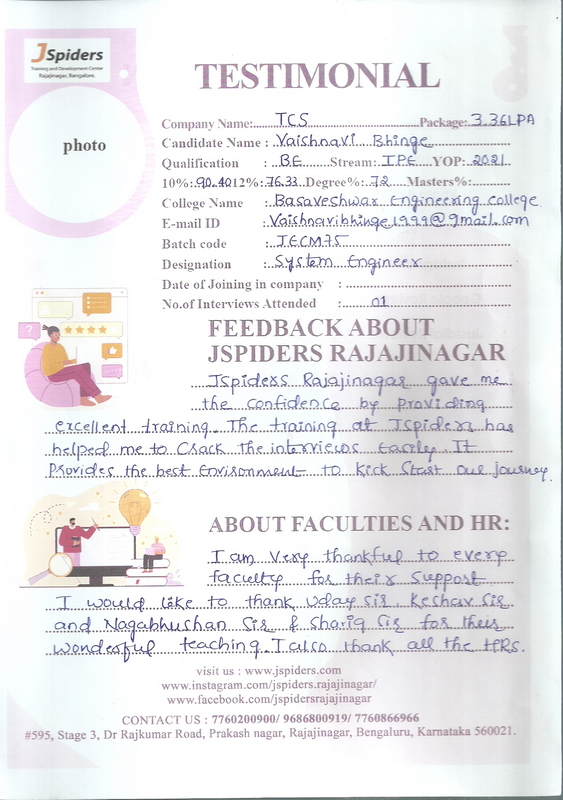 JSpiders
Training and Development Center
Rajajinagar, Bangalore.
TESTIMONIAL
photo
Company Name: TCS Package: 3.36LPA
Candidate Name : Vaishnavi Bhinge
Qualification : BE Stream: IPE YOP: 2021
10%: 90.40 12%: 76.33 Degree%: 72 Masters%:
College Name : Basaveshwar Engineering College
E-mail ID : Vaishnavibhinge1999@gmail.com
Batch code : JECM75
Designation : System Engineer
Date of Joining in company :
No.of Interviews Attended : 01
FEEDBACK ABOUT
JSPIDERS RAJAJINAGAR
JSpiders Rajajinagar gave me
the confidence by providing
excellent training. The training at JSpiders has
helped me to Crack the interviews Easily. It
Provides the best Environment to Kick Start our journey.
ABOUT FACULTIES AND HR:
I am Very thankful to every
faculty for their Support
I would like to thank Uday Sir, Keshav Sir
and Nagabhushan Sir & Shariq Sir for their
wonderful teaching. I also thank all the HRs.
visit us : www.jspiders.com
www.instagram.com/jspiders.rajajinagar/
www.facebook.com/jspidersrajajinagar
CONTACT US : 7760200900/ 9686800919/ 7760866966
#595, Stage 3, Dr Rajkumar Road, Prakash nagar, Rajajinagar, Bengaluru, Karnataka 560021.